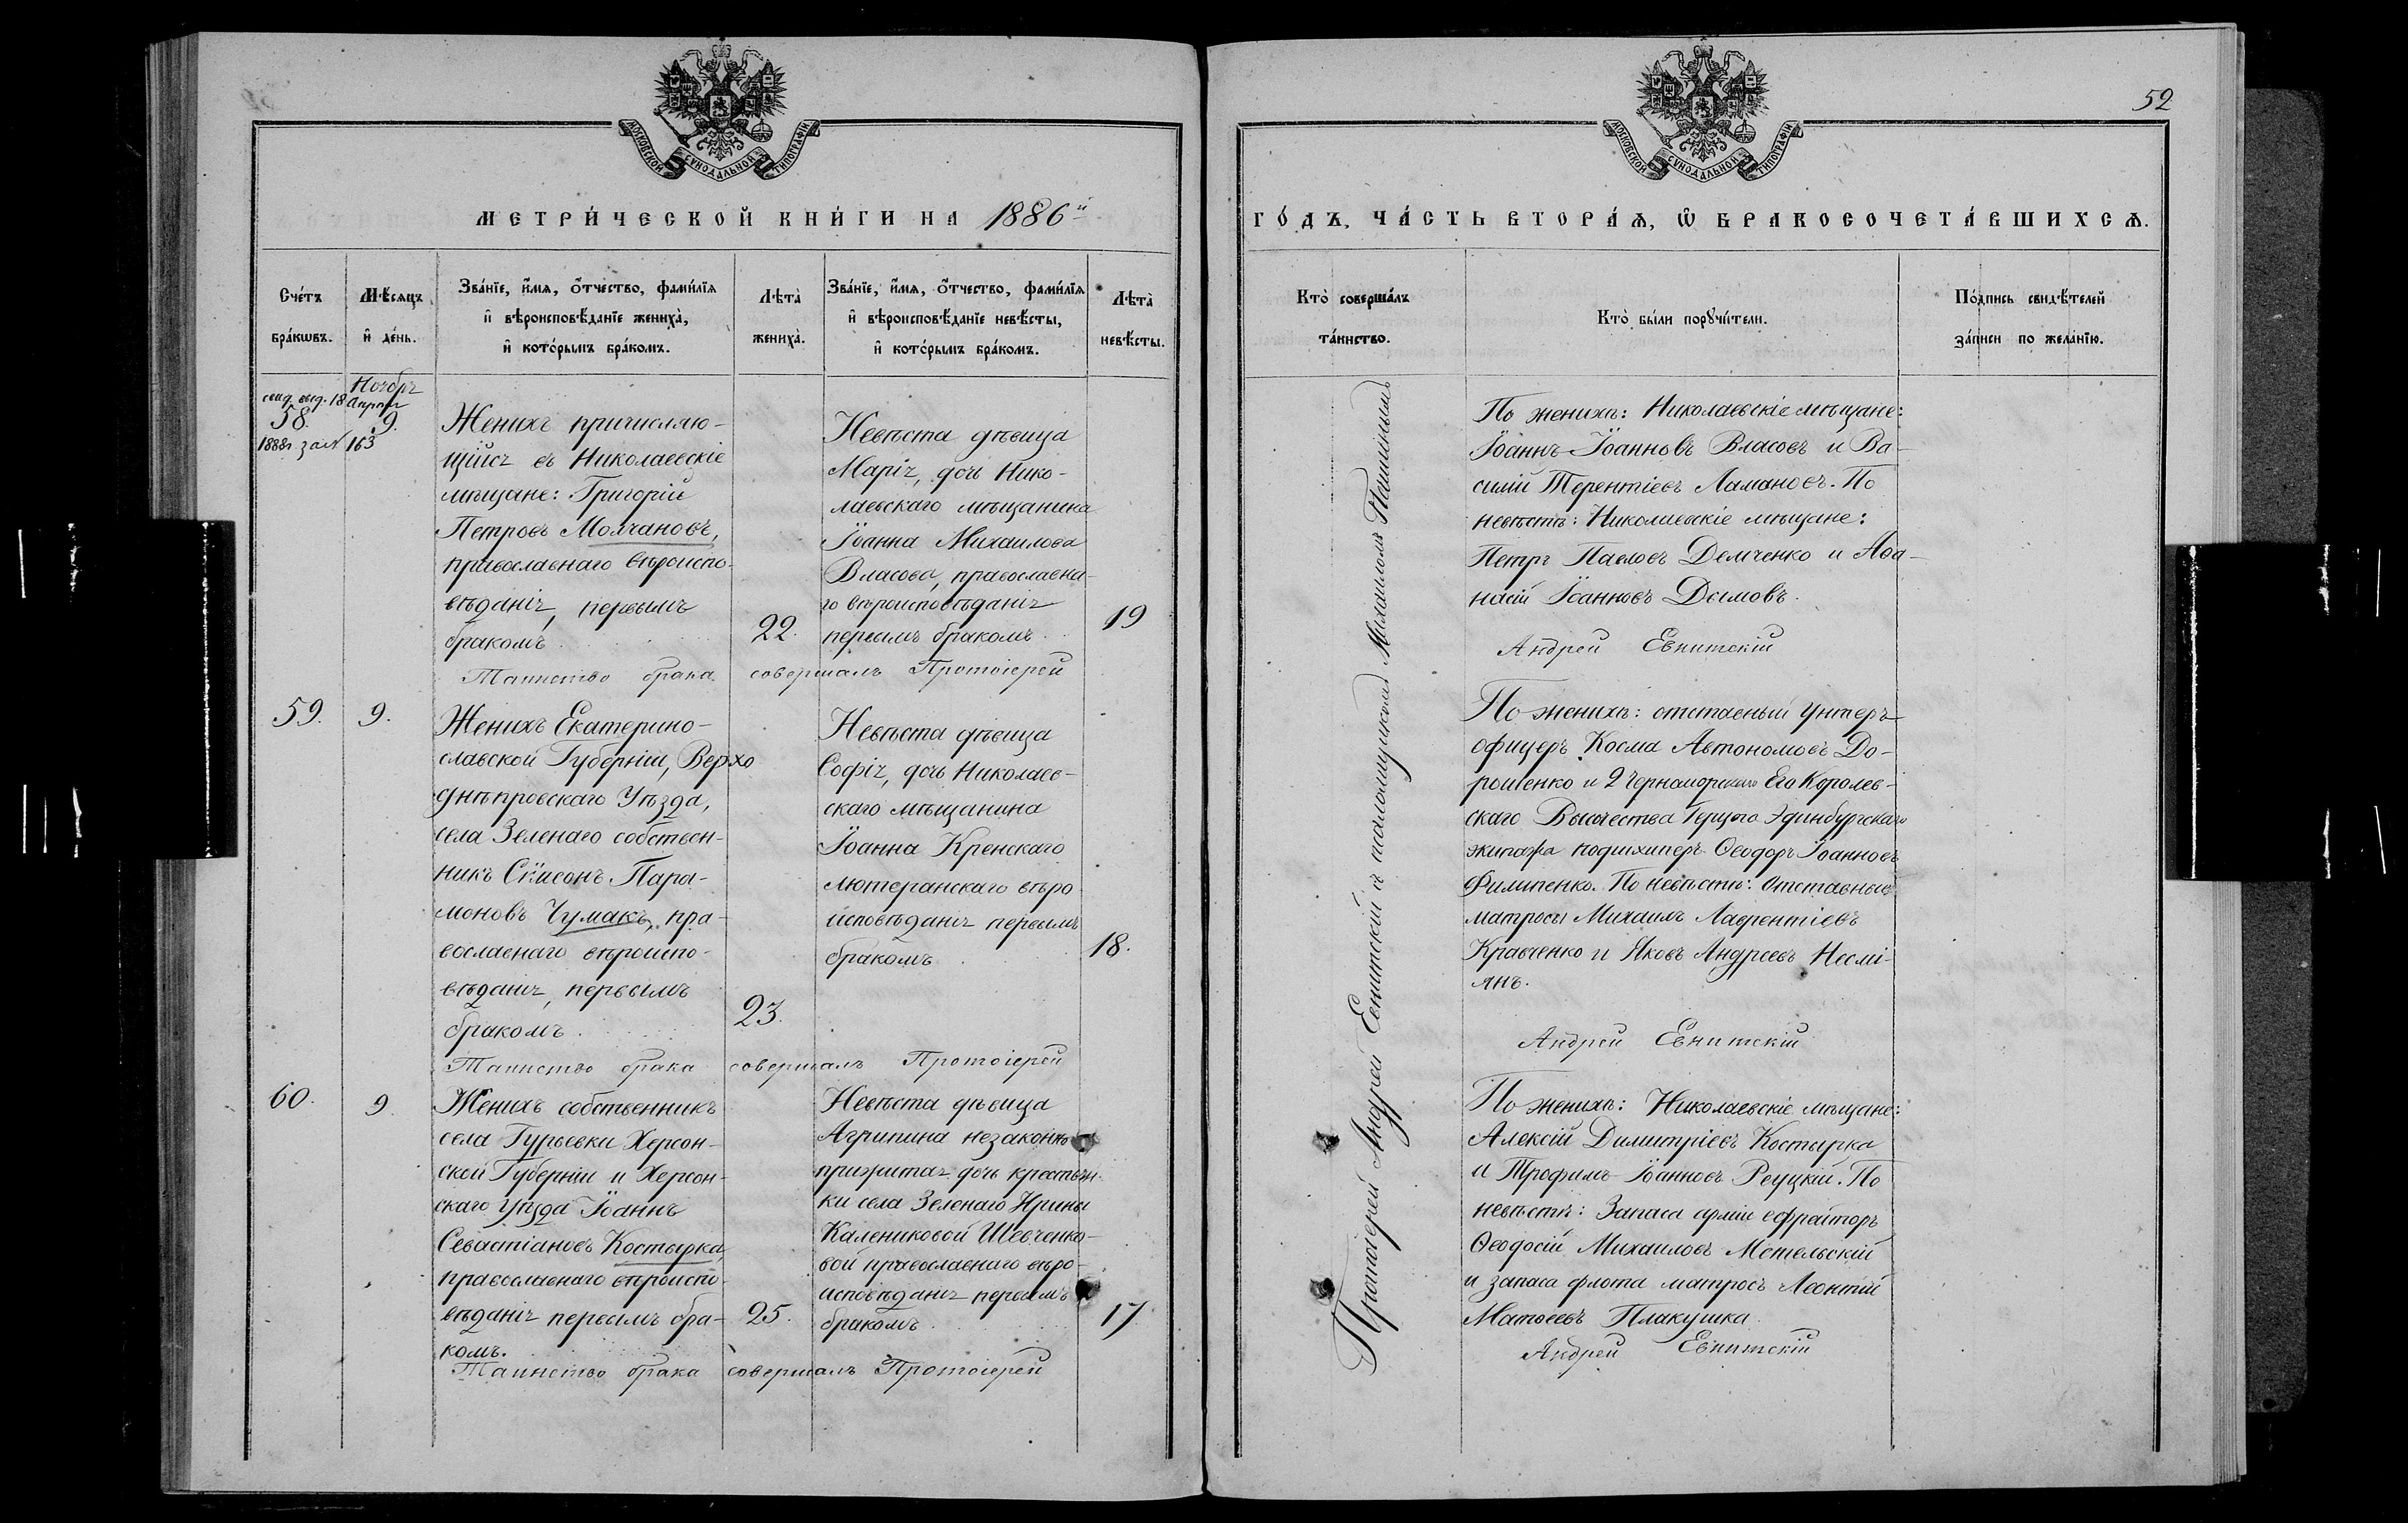 52
МОСКОВСКОЙ СѴНОДАЛЬНОЙ ТИПОГРАФІИ
МОСКОВСКОЙ СѴНОДАЛЬНОЙ ТИПОГРАФІИ
МЕТРИ́ЧЕСКОЙ КНИ́ГИ НА 1886й
ГО́ДЪ, ЧА́СТЬ ВТОРА́Ѧ, Ѿ БРАКОСОЧЕТА́ВШИХСѦ.
Сче́тъ бра́кѡвъ.
Мѣ́сяцъ и҆ де́нь.
Зва́нїе, и҆́мя, о҆́тчество, фами́лїя
и҆ вѣроисповѣ́данїе жениха̀,
и҆ кото́рымъ бра́комъ.
Лѣта̀ жениха̀.
Зва́нїе, и҆́мя, о҆́тчество, фами́лїя
и҆ вѣроисповѣ́данїе невѣ́сты,
и҆ кото́рымъ бра́комъ.
Лѣта̀ невѣ́сты.
Кто̀ соверша́лъ та́инство.
Кто̀ бы́ли порꙋчи́тели.
По́дпись свидѣ́телей
за́писи по жела́нїю.
Ноябрь
свид. выд. 18 Апрѣл
58. 9.
1888г за № 163
Женихъ причисляю-
щійся въ Николаевскіе
мѣщане: Григорій
Петровъ Молчановъ,
православнаго вѣроиспо-
вѣданія, первымъ
бракомъ
22.
Невѣста дѣвица
Марія, дочь Нико-
лаевскаго мѣщанина
Іоанна Михаилова
Власова, православна-
го вѣроисповѣданія
первымъ бракомъ
19
Таинство брака совершалъ Протоіерей
По женихѣ: Николаевскіе мѣщане:
Іоаннъ Іоанновъ Власовъ и Ва-
силій Терентіевъ Ламановъ. По
невѣстѣ: Николаевскіе мѣщане:
Петръ Павловъ Демченко и Аѳа-
насій Іоанновъ Дымовъ.
Андрей Евнитскій
59. 9.
Женихъ Екатерино-
славской Губерніи, Верхо
днѣпровскаго Уѣзда,
села Зеленаго собствен-
никъ Сѵмеонъ Пара-
моновъ Чумакъ, пра-
вославнаго вѣроиспо-
вѣданія, первымъ
бракомъ.
23.
Невѣста дѣвица
Софія, дочь Николаев-
скаго мѣщанина
Іоанна Кренскаго
лютеранскаго вѣро
исповѣданія первымъ
бракомъ
18.
Таинство брака совершалъ Протоіерей
По женихѣ: отставный Унтеръ-
офицеръ Косма Автономовъ До-
рошенко и 2 Черноморскаго Его Королев-
скаго Высочества Герцога Эдинбургскаго
экипажа подшхиперъ Ѳеодоръ Іоанновъ
Филипенко. По невѣстѣ: Отставные
матросы Михаилъ Лаврентіевъ
Кравченко и Яковъ Андреевъ Несмі-
янъ.
Андрей Евнитскій
60. 9
Женихъ собственникъ
села Гурьевки Херсон-
ской Губерніи и Херсон-
скаго Уѣзда Іоаннъ
Севастіановъ Костырка,
православнаго вѣроиспо-
вѣданія первымъ бра-
комъ.
25.
Невѣста дѣвица
Агрипина незаконно
прижитая дочь крестьян-
ки села Зеленаго Ирины
Калениковой Шевченко-
вой православнаго вѣро-
исповѣданія первымъ
бракомъ
17.
Таинство брака совершалъ Протоіерей
По женихѣ: Николаевскіе мѣщане:
Алексій Димитріевъ Костырка
и Трофимъ Іоанновъ Реуцкій. По
невѣстѣ: Запаса арміи ефрейторъ
Ѳеодосій Михаиловъ Метельскій
и запаса флота матросъ Леонтій
Матѳеевъ Плакушка
Андрей Евнитскій
Протоіерей Андрей Евнитскій и псаломщикомъ Михаиломъ